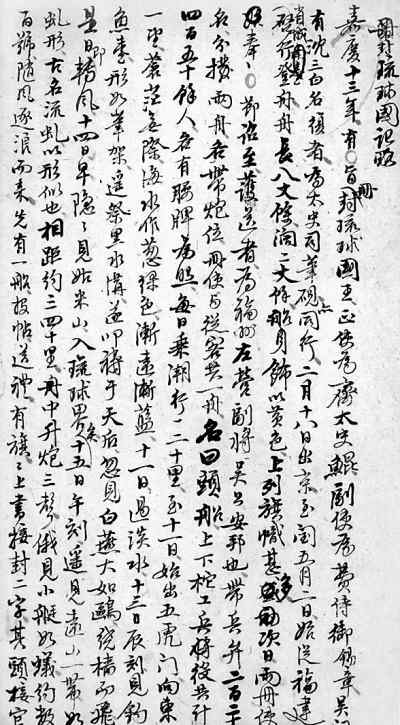 冊封琉球國記略
嘉慶十三年有○旨冊封琉球國王正使為齊太史鯤副使為費侍御錫章吳
有沈三白名復者為太史司筆硯亦同行二月十八日出京至閩五月二日始從福建
登舟舟長八丈餘闊二丈餘船身飾以黃色上列旗幟甚多次日兩冊使
奉○節詔至護送者為福州左營副將吳公安邦也帶兵弁二百二
名分撥兩舟各帶炮位冊使與從客共一舟名曰頭船上下柁工兵將役共計
四百五十餘人各有腰牌為照每日乘潮行一二十里至十一日始出五虎門向東
一望蒼茫無際海水作葱綠色漸遠漸藍十一日過淡水十三日辰刻見釣
魚臺形如筆架遙祭黑水溝遂叩禱于天后忽見白燕大如鷗繞檣而飛
是日即轉風十四日早隱〻見姑米山入琉球界矣十五日午刻遙見遠山一帶如
虬形古名流虬以形似也相距約三四十里舟中升炮三聲俄見小艇如蟻約數
百號隨風逐浪而來先有一船投帖送禮有旗〻上書接封二字其頭接官